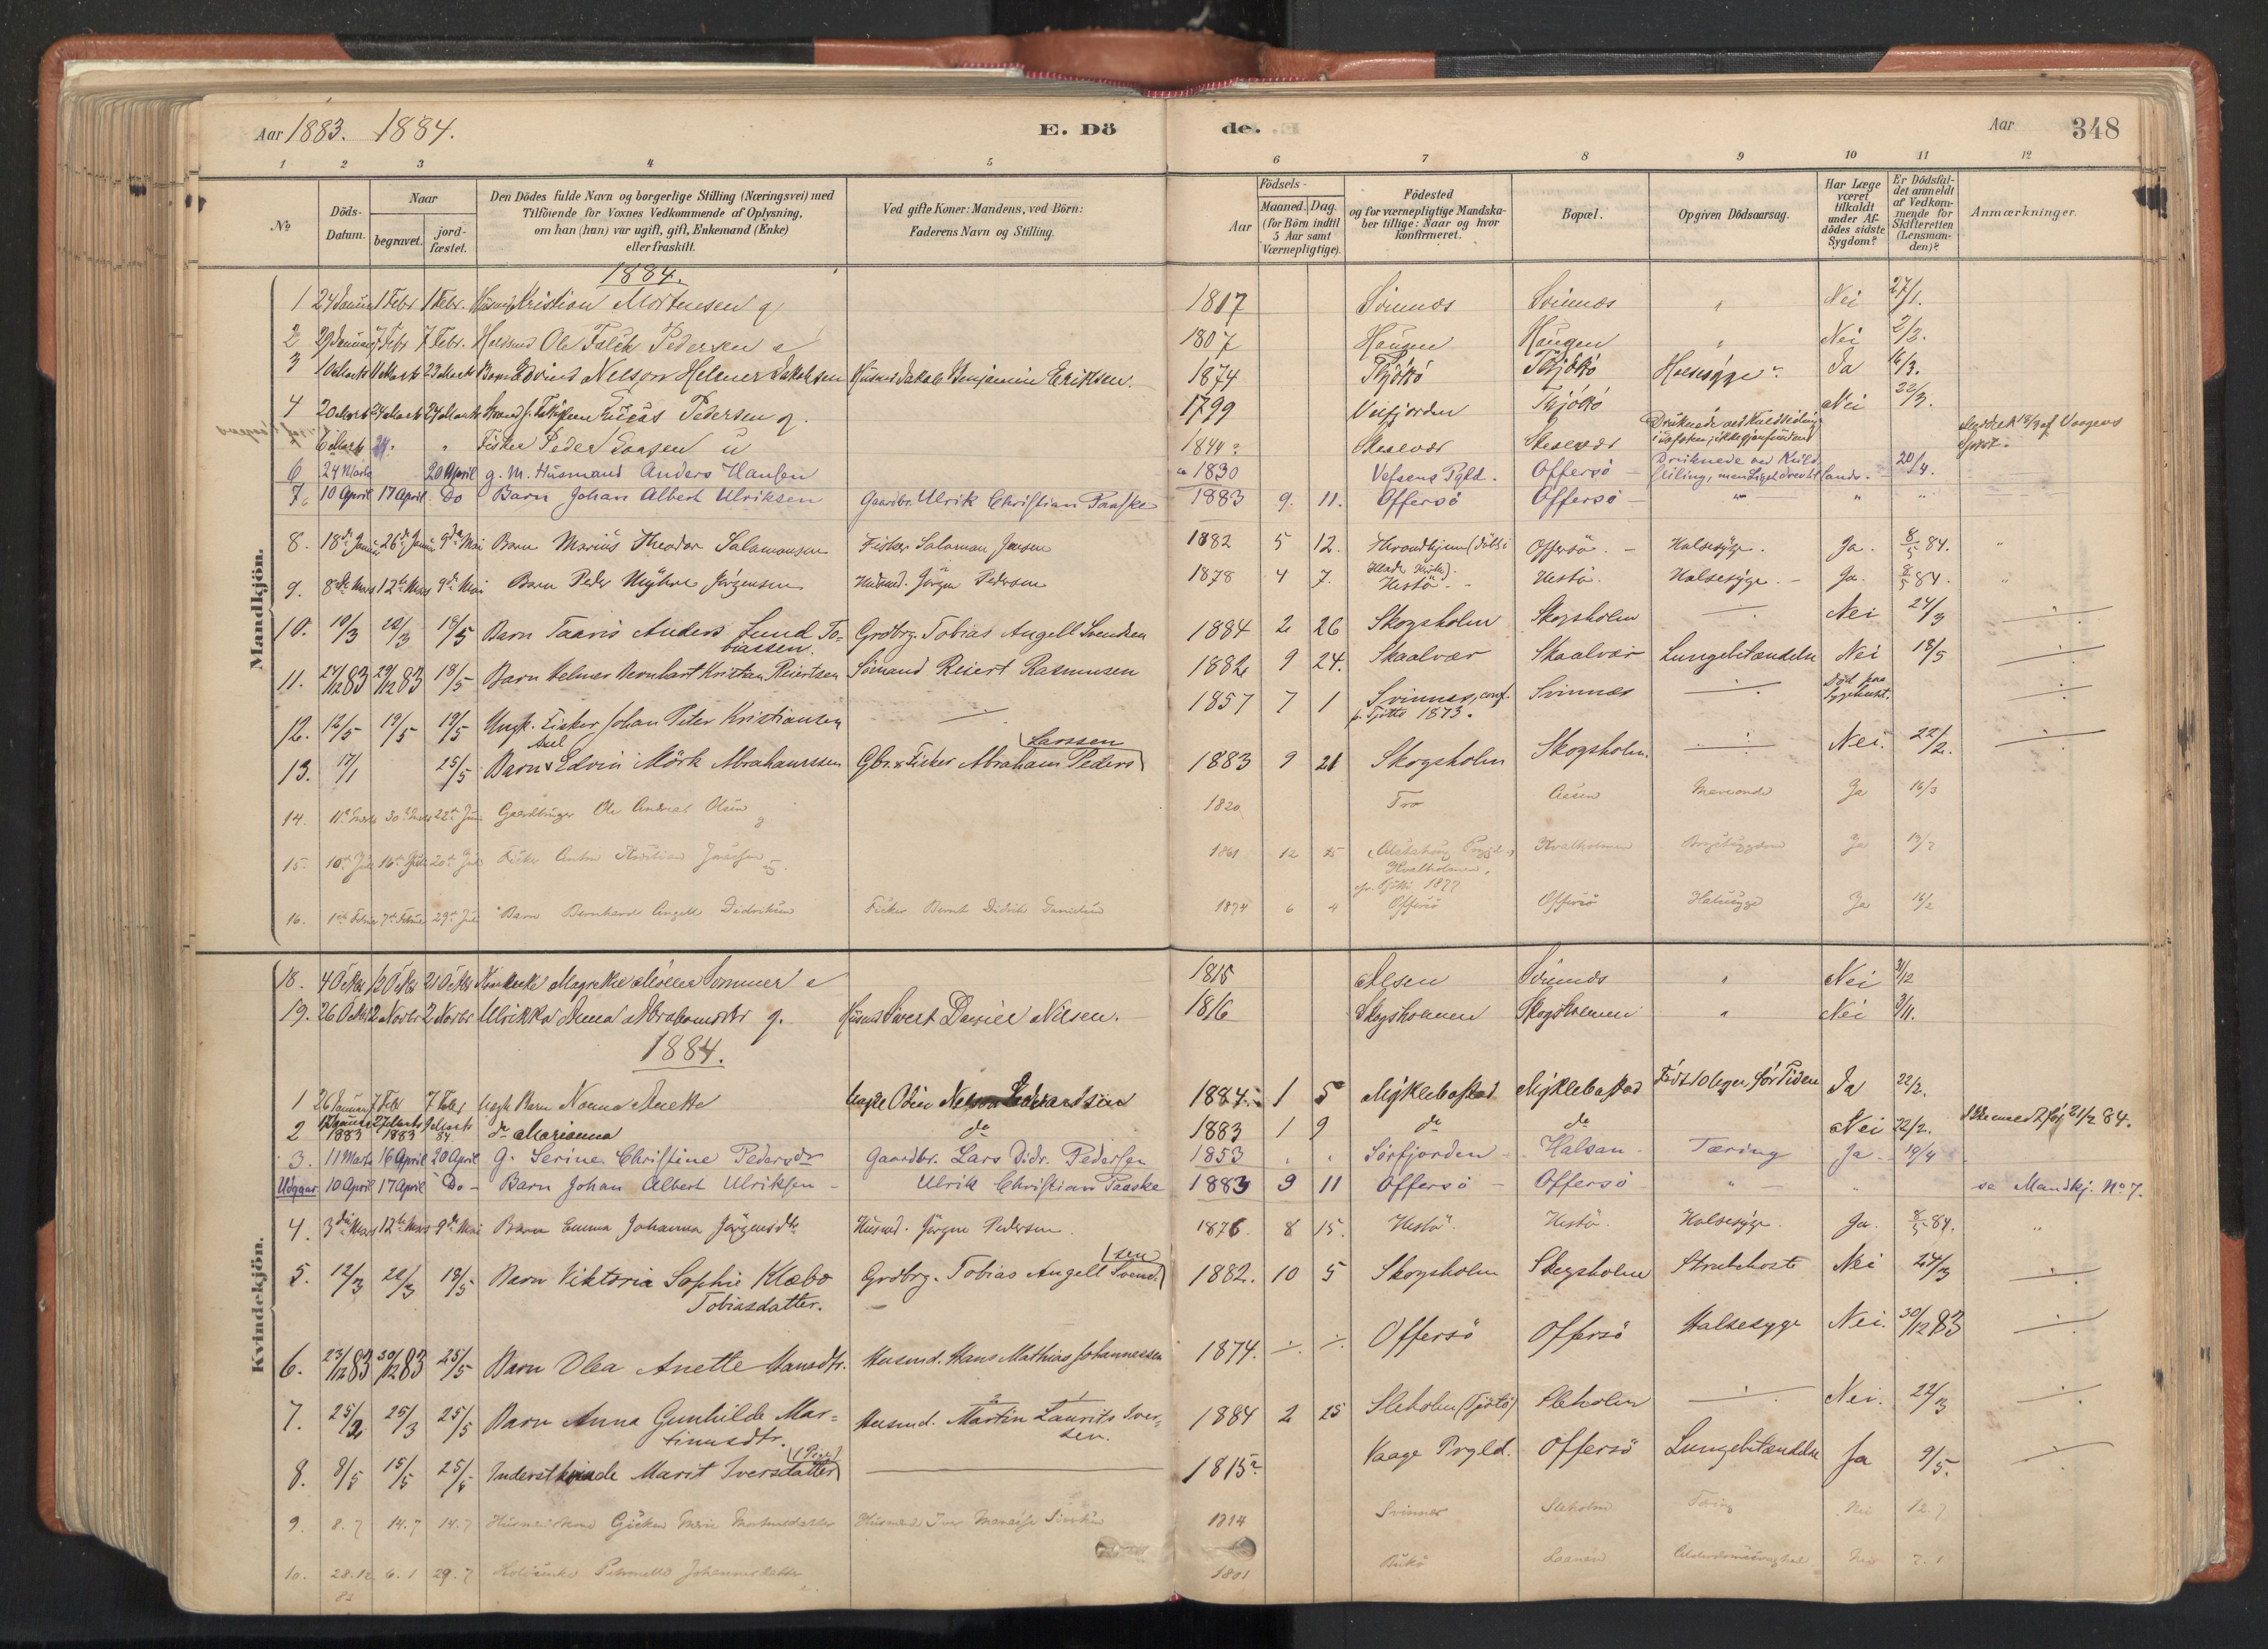 Aar 1883. 1884.
E. Döde.
Aar 348
1 2 3 4 5 6 7 8 9 10 11 12
No
Döds-Datum.
Naar
begravet.
jord-fæstet.
Den Dödes fulde Navn og borgerlige Stilling (Næringsvei) med
Tilföiende for Voxnes Vedkommende af Oplysning,
om han (hun) var ugift, gift, Enkemand (Enke)
eller fraskilt.
Ved gifte Koner: Mandens, ved Börn:
Faderens Navn og Stilling.
Födsels-
Aar
Maaned. Dag.
(for Börn indtil
5 Aar samt
Værnepligtige).
Födested
og for værnepligtige Mandska-
ber tillige: Naar og hvor
konfirmeret.
Bopæl.
Opgiven Dödsaarsag.
Har Læge
været
tilkaldt
under Af-
dödes sidste
Sygdom?
Er Dödsfal-
det anmeldt
af Vedkom-
mende for
Skifteretten
(Lensman-
den)?
Anmærkninger.
Mandkjön.
1884.
1 24 Januar 1 Febr 1 Febr. Husmd Kristian Mortensen g 1817 Svinnæs Svinnæs " Nei 27/1.
2 29 Januar 7 Febr 7 Febr. Ole Falch Pedersen e 1807 Haugen Haugen " Nei 2/2.
3 10 Marts 11 Marts 23 Marts Barn Edvind Nelson Helmer Jakobsen Husmd Jakob Benjamin Eriksen. 1874 Thjöttö Thjöttö Halssyge Ja 16/3.
4 20 Marts 24 Marts 24 Marts Lucas Pedersen g. 1799 Veifjorden Thjöttö Nei 22/3.
6 Marts " " Fisker Peder u 1844? Skaalvær Skaalvær Druknede ved Kuldseiling
6 24 Marts 20 April g. M. Husmand Anders Hansen ca 1830 Vefsens Pgld. Offersö Druknede ved Kuld-
seiling, men Liget drevet i Land. 20/4.
7. 10 April 17 April Do Barn Johan Albert Ulriksen Gaardbr. Ulrik Christian Paaske 1883 9. 11. Offersö Offersö " " "
8. 18de Januar 26de Januar 9de Mai Barn Marius Theodor Salamonsen Fisker Salomon Jensen 1882 5 12. Offersö. Halsesyge. Ja. 8/5 84. "
9. 8de Mars 12te Mars 9de Mai Barn Peder Myhre Jörgensen Husmd. Jörgen Pedersen 1878 4 7. Hestö Hestö. Halsesyge. Ja. 8/5 84. "
10. 10/3 22/3 18/5 Barn Taaris Anders Lund To-
biassen. Grdbrg. Tobias Angell Svendsen 1884 2 26 Skogsholm Skogsholm Nei 24/3
11. 24/12 83 29/12 83 18/5 Barn Helmer Bernhart Kristian Reiertsen Sömand Reiert Rasmussen 1882 9 24. Skaalvær Skaalvær Lungebetændelse Nei 18/5
12. 12/5 19/5 19/5 Ungk. Fisker Johan Peter Kristiansen 1857 7 1 Svinnæs, conf.
p. Tjöttö 1873. Svinnæs Död paa
Sygehuset.
13. 17/1 25/5 Barn Axel Edvin Mörk Abrahamsen Gbr. & Fisker Abraham Peders Larssen 1883 9 21 Skogsholm Skogsholm Nei. 22/2.
14. 11te Marts 30te Marts 22de Juni Gaardbruger Ole Andreas Olsen g 1820 Tro Ja 16/3
15. 10de Juli 16de Juli 20de Juli Fisker Anton Kristian Jensen u. 1861 12 25 (Alstahoug Prgjd.)
Kvalholmen,
Tjöttö 1877 Kvalholmen Brystsygdom Ja
16. 1ste Februar 7de Februar 29de Juli Barn Bernhard Angell Didriksen Fisker Bernt Didrik Danielsen 1874 6 4 Offersö Offersö Halssyge Ja 16/2
Kvindekjön.
18. 4 Octbr 12 Octbr 21 Octbr Magrethe Möller Sommer e 1815 Alsen Svinnæs " Nei 31/12
19. 26 Octbr 2 Novbr 2 Novbr Ulrikka Anna Abrahamsdtr g. Husmd Sivert Daniel Nilsen. 1816 Skogsholmen Skogsholmen " Nei 3/11.
1884.
1 26 Januar 7 Febr 7 Febr uægte Barn Nanna Anette Ungk Odin Nelson Edvardsen 1884 1 5 Myklebostad Myklebostad Födt 10 Uger för Tiden Ja 22/2.
2 1883 1883 84 do Marianna do 1883 1 9 do do Nei 22/2. Ikke meldt för 21/2 84.
3. 11 Marts 16 April 20 April g. Serine Christine Pedersdr Gaardbr. Lars Didr. Pedersen 1853 " " Sörfjorden Halsan Tæring Ja 19/4
Udgaar 10 April 17 April Do Barn Johan Albert Ulriksen Ulrik Christian Paaske 1883 9 11 Offersö Offersö " " se Mandkj. No 7.
4. 3die Mars 12te Mars 9de Mai Barn Emma Johanna Jörgensdtr Husmd. Jörgen Pedersen 1876 8 15. Hestö. Hestö. Halsesyge. Ja. 8/5 84. "
5. 12/3 22/3 18/5 Barn Viktoria Sophie Klæbo
Tobiasdatter. Grdbrg. Tobias Angell Svend-
sen 1882. 10 5 Skogsholm Skogsholm Strubehoste Nei 24/3
6. 23/12 83 30/12 83 25/5 Barn Olea Anette Hansdtr. Husmd. Hans Mathias Johannessen 1874. Offersö Offersö Halsesyge Nei. 30/12 83
7. 25/2 25/3 25/5 Barn Anna Gunhilde Mar-
tinusdtr. Husmd. Martin Laurits Iver-
sen. 1884 2 25 Sleholm (Tjötö) Sleholm Nei. 22/3
8. 8/5 15/5 25/5 Inderstkvinde Marit Iversdatter (Pige) 1815? Vaage Prgld. Offersö Lungebetændelse Ja 9/5.
9. 8.7 14.7 14.7 Husmandskone Marie Mortensdatter Husmand Iver 1814 Svinnæs Sleholm Tæring Nei 12.7
10. 28.12 83 6.1 29.7 Petronelle Johannesdatter e. 1801 Alderdomssvaghed Nei 7.1